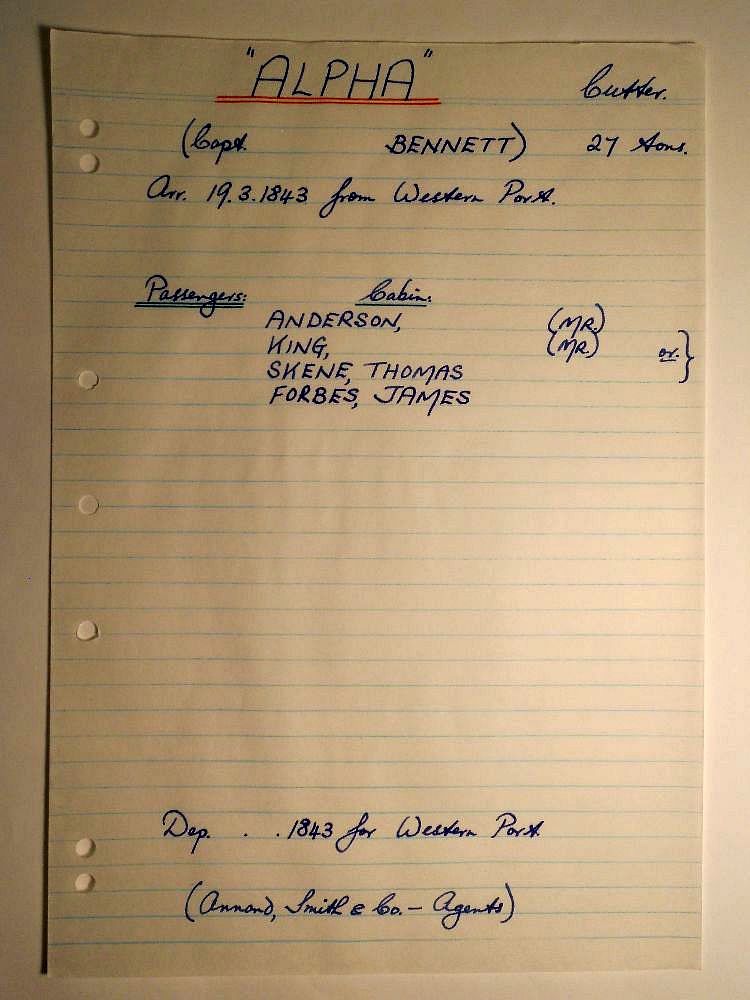 "ALPHA" Cutter.
(Capt. BENNETT) 27 tons.
Arr. 19.3.1843 from Western Port.
Passengers: Cabin:
ANDERSON, (MR.)
KING, (MR.) or. }
SKENE, THOMAS
FORBES, JAMES
Dep. . . 1843 for Western Port
(Annand, Smith & Co. - Agents)